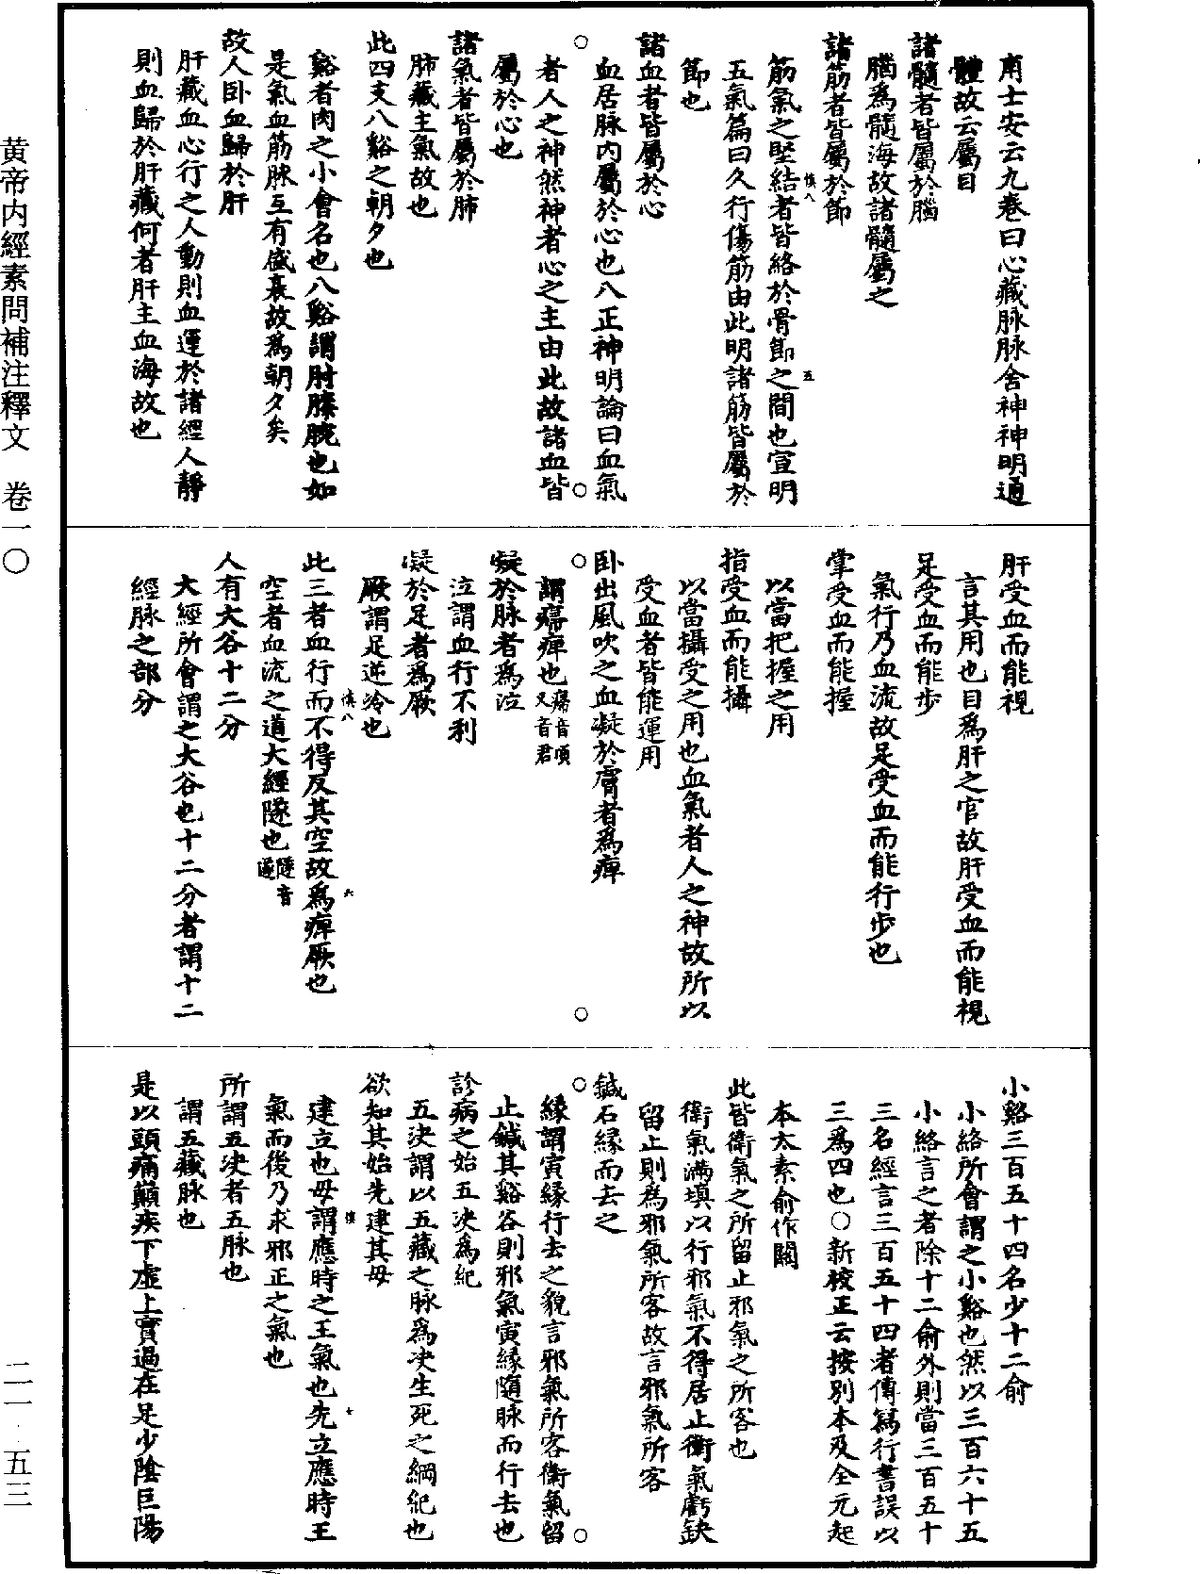 甫士安云九卷曰心藏脉脉舍神神明通
體故云屬目
諸髓者皆屬於腦
腦為髓海故諸髓屬之
諸筋者皆屬於節
筋氣之堅結者皆絡於骨節之間也宣明
慎八
五
五氣篇曰久行傷筋由此明諸筋皆屬於
節也
諸血者皆屬於心
血居脉內屬於心也八正神明論曰血氣
者人之神然神者心之主由此故諸血皆
屬於心也
諸氣者皆屬於肺
肺藏主氣故也
此四支八谿之朝夕也
谿者肉之小會名也八谿謂肘膝腕也如
是氣血筋脉互有盛衰故為朝夕矣
故人卧血歸於肝
肝藏血心行之人動則血運於諸經人靜
則血歸於肝藏何者肝主血海故也
肝受血而能視
言其用也目為肝之官故肝受血而能視
足受血而能步
氣行乃血流故足受血而能行步也
掌受血而能握
以當把握之用
指受血而能攝
以當攝受之用也血氣者人之神故所以
受血者皆能運用
卧出風吹之血凝於膚者為痺
謂㿏痺也㿏音頑又音君
凝於脉者為泣
泣謂血行不利
凝於足者為厥
厥謂足逆冷也
此三者血行而不得反其空故為痺厥也
慎八
六
空者血流之道大經隧也隧音遂
人有大谷十二分
大經所會謂之大谷也十二分者謂十二
經脉之部分
小谿三百五十四名少十二俞
小絡所會謂之小谿也然以三百六十五
小絡言之者除十二俞外則當三百五十
三名經言三百五十四者傳寫行書誤以
三為四也○新校正云按別本及全元起
本太素俞作關
此皆衛氣之所留止邪氣之所客也
衛氣滿填以行邪氣不得居止衛氣虧缺
留止則為邪氣所客故言邪氣所客
鍼石緣而去之
緣謂寅緣行去之貌言邪氣所客衛氣留
止鍼其谿谷則邪氣寅緣隨脉而行去也
診病之始五決為紀
五決謂以五藏之脉為決生死之綱紀也
欲知其始先建其母
建立也母謂應時之王氣也先立應時王
慎
七
氣而後乃求邪正之氣也
所謂五決者五脉也
謂五藏脉也
是以頭痛巔疾下虛上實過在足少陰巨陽
黃帝內經素問補注釋文　卷一〇
二一·五三